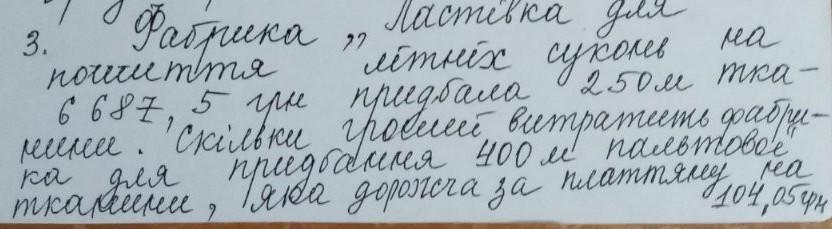 3. Фабрика „Ластівка для
пошиття літніх суконь на
6 687, 5 грн придбала 250м тка-
нини. Скільки грошей витратить фабри-
ка для придбання 400 м пальтової
тканини, яка дорожча за платтяну на
104,05грн